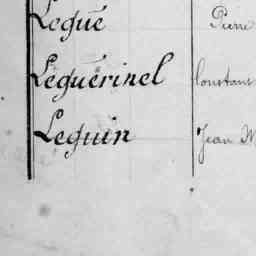 Legué Pierre
Léguérinel Constant
Leguin Jean M